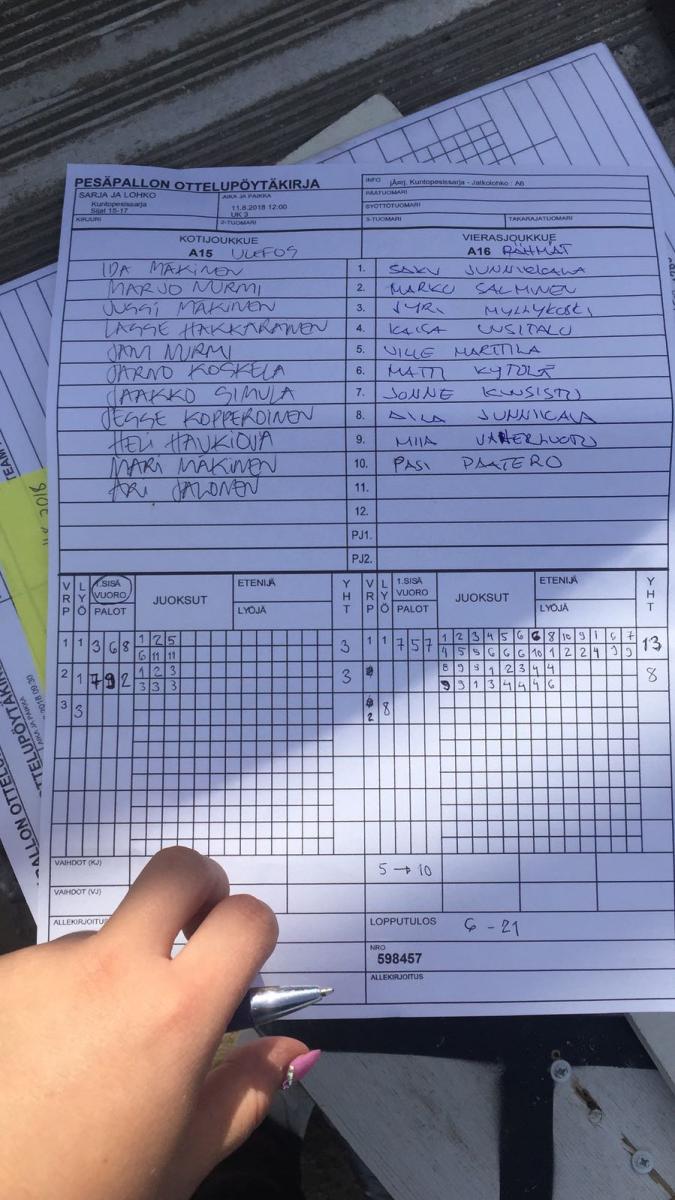 PESÄPALLON OTTELUPÖYTÄKIRJA
INFO jÄrej, Kuntopesissarja - Jatkolohko : A6
SARJA JA LOHKO
Kuntopesissarja
Sijat 15-17
AIKA JA PAIKKA
11.8.2018 12:00
UK 3
PÄÄTUOMARI
SYÖTTÖTUOMARI
KIRJURI 2-TUOMARI 3-TUOMARI TAKARAJATUOMARI
KOTIJOUKKUE VIERASJOUKKUE
A15 ULEFOS A16 RÄHMÄT
IDA MÄKINEN 1. SAKU JUNNIKKALA
MARJO NURMI 2. MARKU SALMINEN
JUSSI MÄKINEN 3. JYRI MYLLYKOSKI
LASSE HAKKARAINEN 4. KAISA UUSITALO
JANI NURMI 5. VILLE MARTTILA
JARNO KOSKELA 6. MATTI KYTÖLÄ
JAAKKO SIMULA 7. JONNE KUUSISTO
JESSE KOPPEROINEN 8. AILA JUNNIKALA
HELI HAUKIOJA 9. MIIA
MARI MÄKINEN 10. PASI PAATERO
ARI JALONEN 11.
12.
PJ1.
PJ2.
VRP LYÖ 1.SISÄ VUORO PALOT JUOKSUT ETENIJÄ LYÖJÄ YHT VRP LYÖ 1.SISÄ VUORO PALOT JUOKSUT ETENIJÄ LYÖJÄ YHT
1 1 3 6 8 1 2 5 3 1 1 7 5 7 1 2 3 4 5 6 6 8 10 9 1 6 7 13
6 11 11 4 5 5 6 6 6 10 1 2 2 4 9 9
2 1 7 9 2 1 2 3 3 8 9 9 1 2 3 4 4 8
3 3 3 9 9 1 3 4 4 4 6
3 3 2 8
VAIHDOT (KJ) 5 → 10
VAIHDOT (VJ)
ALLEKIRJOITUS LOPPUTULOS 6 - 21
NRO
598457
ALLEKIRJOITUS